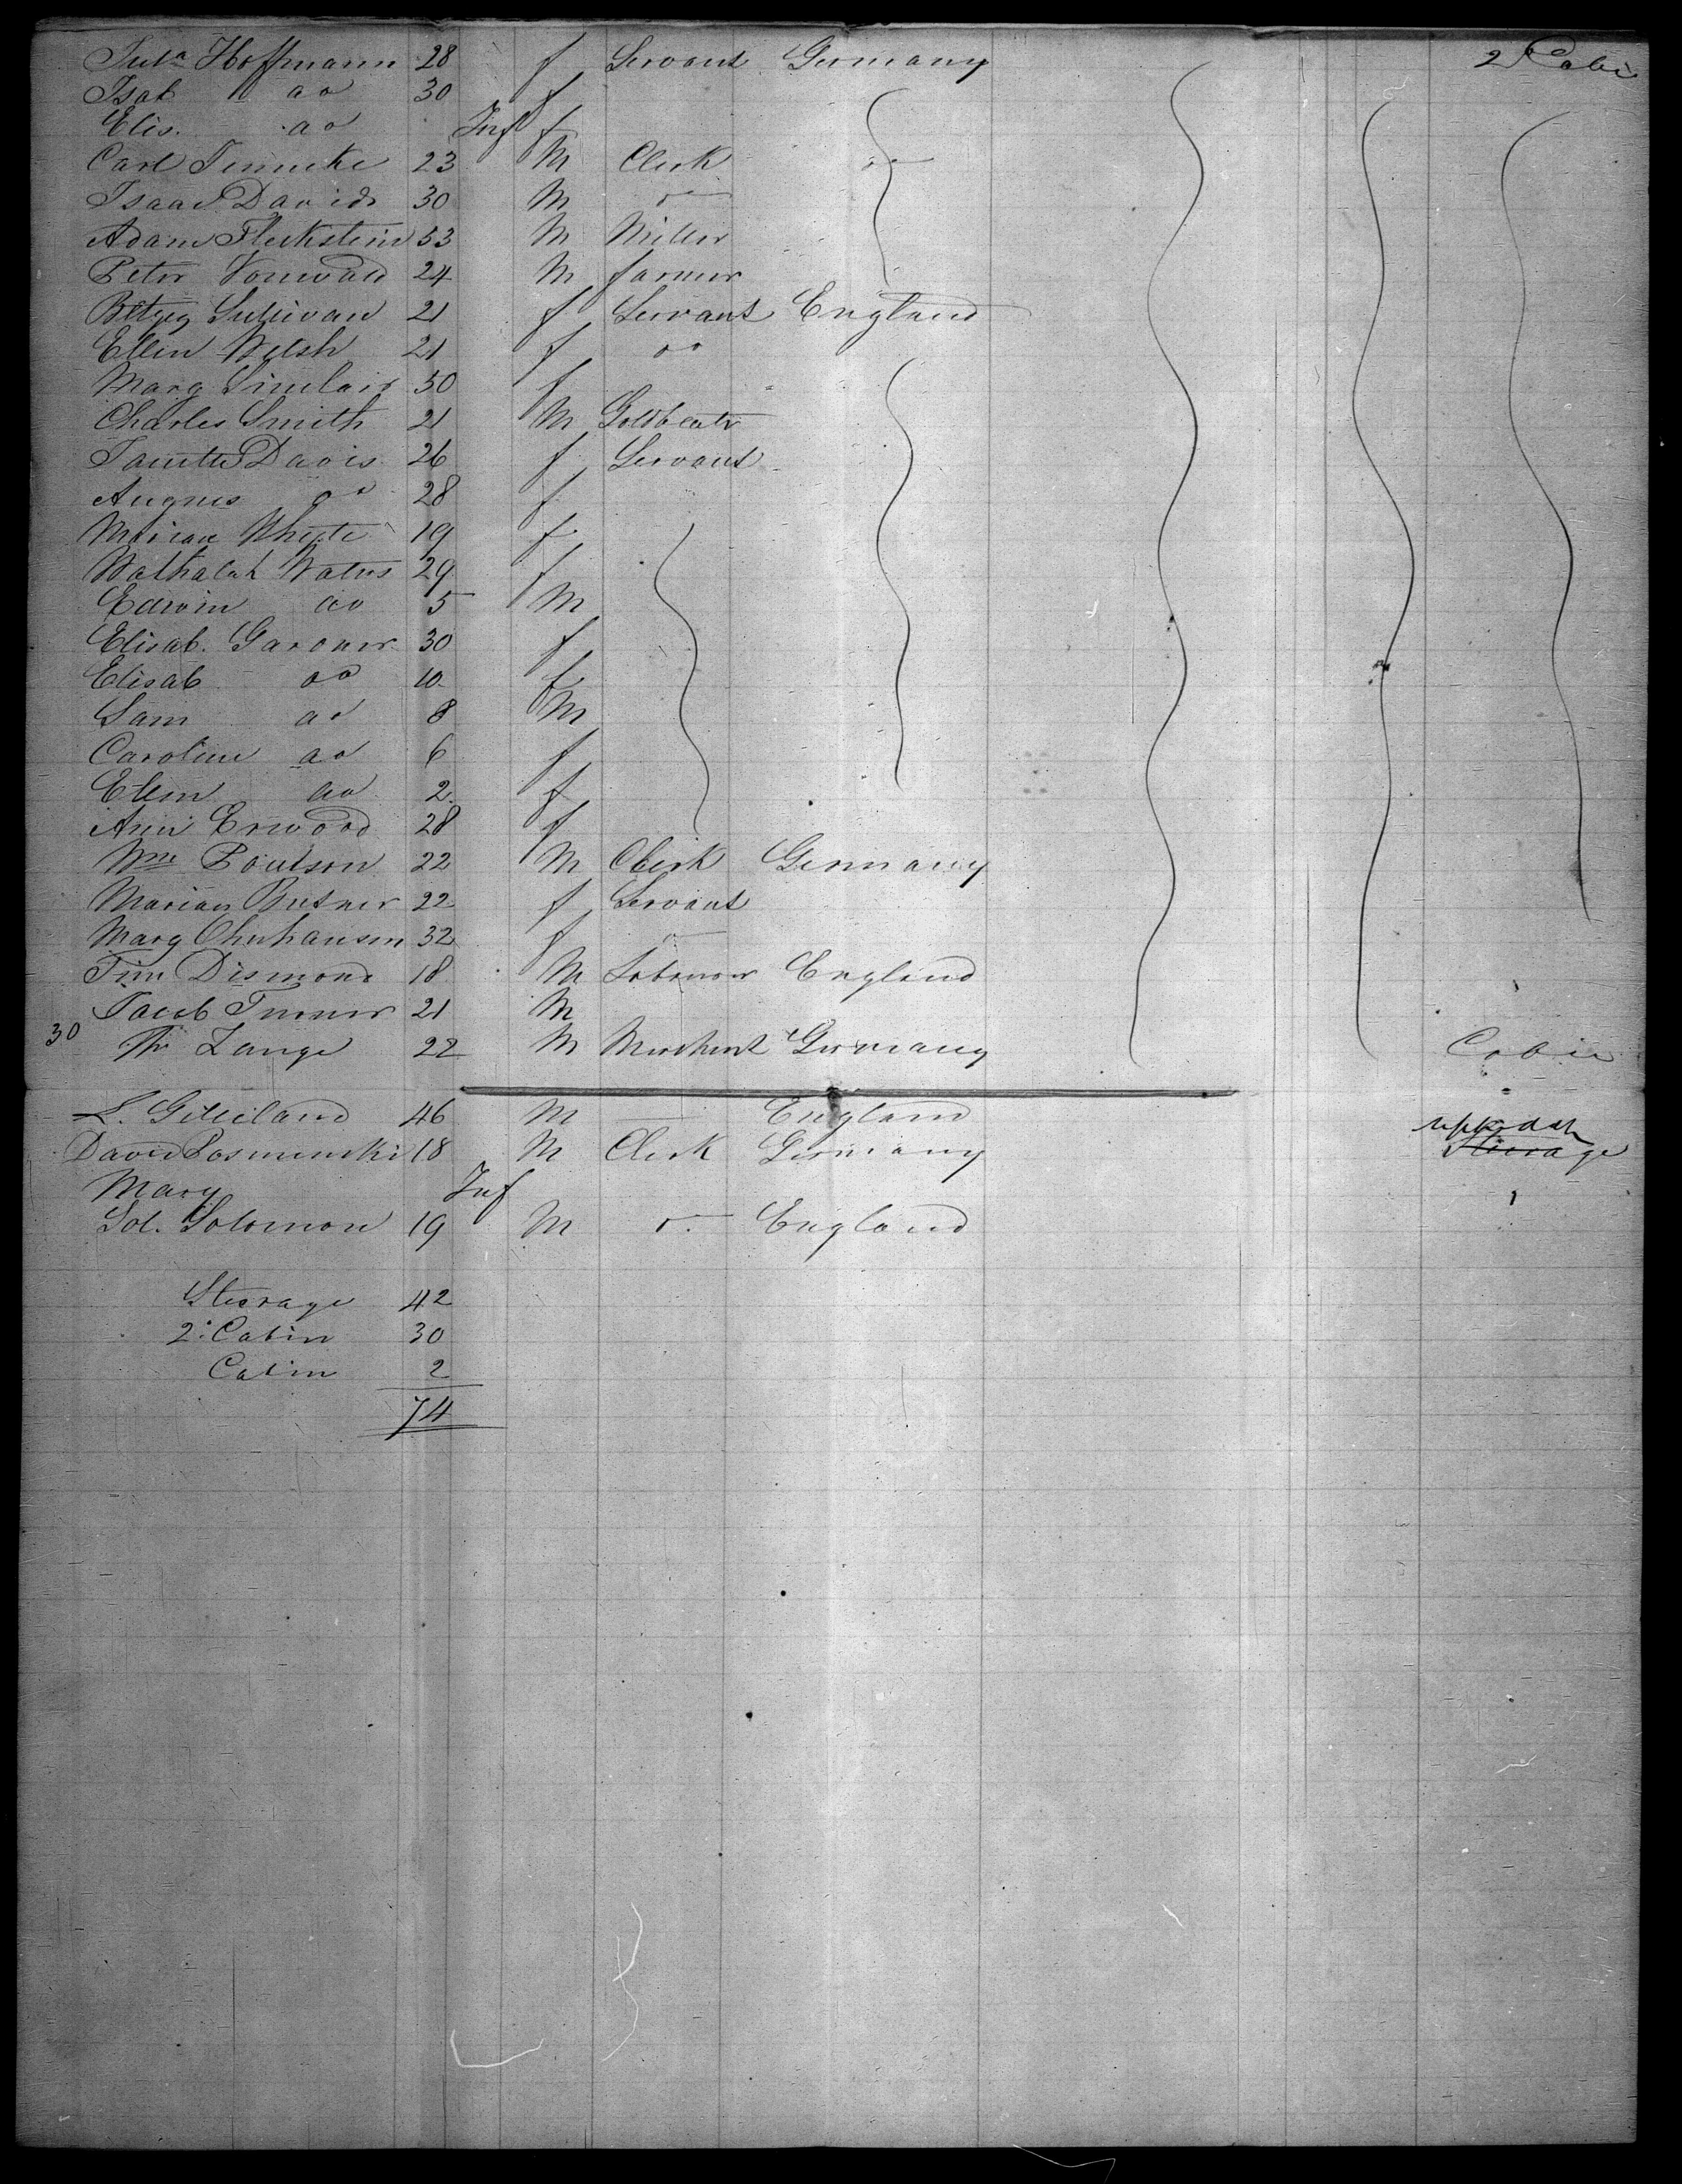 Hoffmann 28 f Servant Germany 2 Cabi
Isab do 30 f
Elis. do Inf f
Carl 23 M Clerk do
Isaac Davids 30 M do
Adam Fleckstein 53 M Miller
Peter 24 M farmer
Betzey Sulivan 21 f Servant England
Ellen Welsh 21 f do
Marg Sinclair 50 f
Charles Smith 21 M Goldbeatr
Davis 26 f Servant
Augnes do 28 f
Marian Whyte 19 f
Waters 29 f
Edwin do 5 M
Elisab. Gardner 30 f
Elisab do 10 f
Sam do 8 M
Caroline do 6 f
Ellen do 2 f
Ann Erwood 28 f
Wm Poulson 22 M Clerk Germany
Marian 22 f Servant
Marg 32 f do
Tim Dismond 18 M Labourer England
Jacob Turner 21 M
30 Lange 22 M Merchant Germany Cabin
L. Gilleland 46 M England
David 18 M Clerk Germany Steerage
Mary Inf
Sol. Solomon 19 M do England
Steerage 42
2: Cabin 30
Cabin 2
74